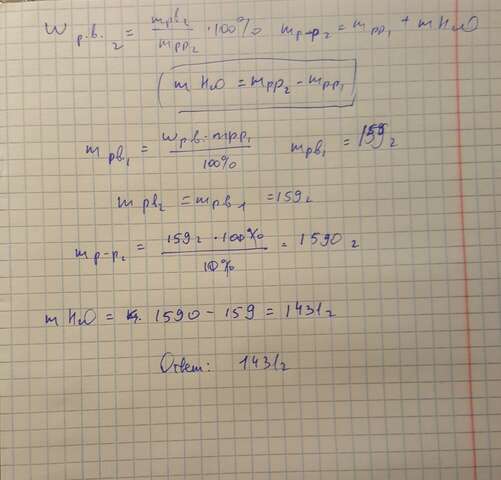 W р.в.₂ = mрв₂ / mрр₂ · 100% mр-р₂ = mрр₁ + mH₂O
m H₂O = mрр₂ - mрр₁
m рв₁ = Wр.в. · mрр₁ / 100% mрв₁ = 159 г
m рв₂ = mрв₁ = 159 г
m р-р₂ = 159 г · 100% / 10% = 1590 г
m H₂O = 1590 - 159 = 1431 г
Ответ: 1431 г